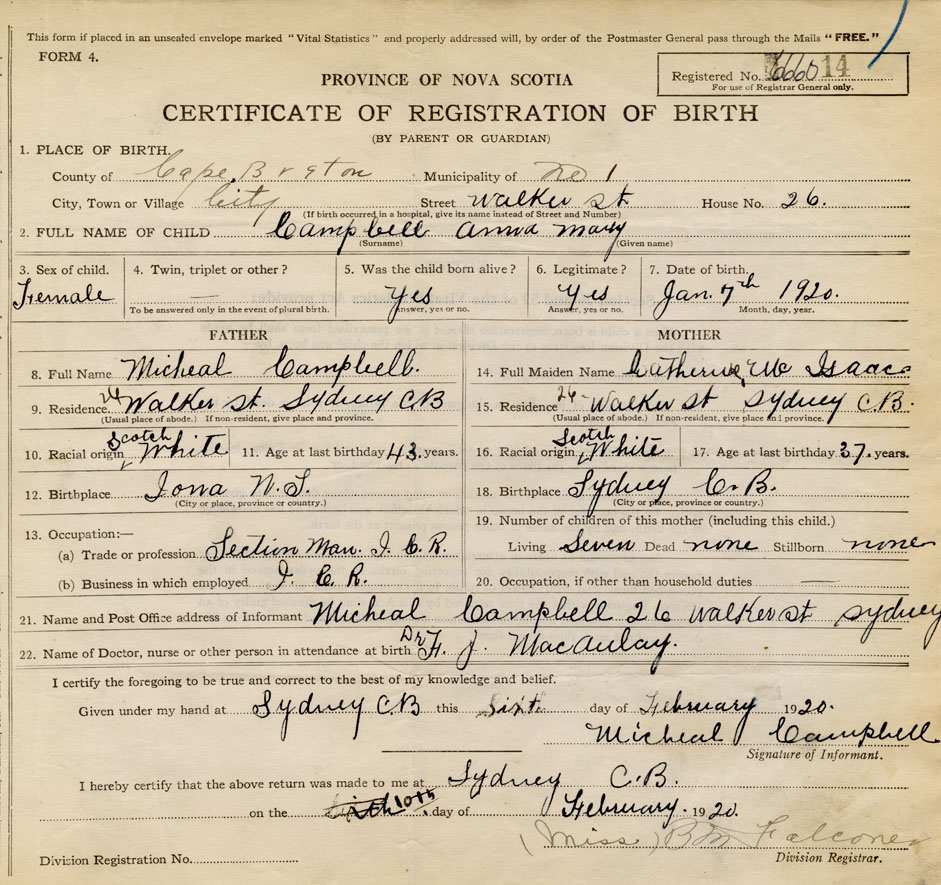 This form if placed in an unsealed envelope marked "Vital Statistics" and properly addressed will, by order of the Postmaster General pass through the Mails "FREE."
FORM 4.
Registered No. 14
For use of Registrar General only.
PROVINCE OF NOVA SCOTIA
CERTIFICATE OF REGISTRATION OF BIRTH
(BY PARENT OR GUARDIAN)
1. PLACE OF BIRTH.
County of Cape Breton Municipality of No 1
City, Town or Village City Street Walker St House No. 26.
(If birth occurred in a hospital, give its name instead of Street and Number)
2. FULL NAME OF CHILD Campbell Anna Mary
(Surname) (Given name)
3. Sex of child. 4. Twin, triplet or other? 5. Was the child born alive? 6. Legitimate? 7. Date of birth.
Female — Yes Yes Jan. 7th 1920.
To be answered only in the event of plural birth. Answer, yes or no. Answer, yes or no. Month, day, year.
FATHER MOTHER
8. Full Name Micheal Campbell. 14. Full Maiden Name Catherine Mc Isaac
9. Residence Walker St. Sydney C B 15. Residence 26 Walker St Sydney C.B.
(Usual place of abode.) If non-resident, give place and province. (Usual place of abode.) If non-resident, give place and province.
10. Racial origin Scotch White 11. Age at last birthday 43. years. 16. Racial origin Scotch White 17. Age at last birthday 37. years.
12. Birthplace Iona N.S. 18. Birthplace Sydney C.B.
(City or place, province or country.) (City or place, province or country.)
13. Occupation:— 19. Number of children of this mother (including this child.)
(a) Trade or profession Section Man. I. C. R. Living Seven Dead none Stillborn none
(b) Business in which employed I. C. R. 20. Occupation, if other than household duties —
21. Name and Post Office address of Informant Micheal Campbell 26 Walker St Sydney
22. Name of Doctor, nurse or other person in attendance at birth Dr. J. MacAulay.
I certify the foregoing to be true and correct to the best of my knowledge and belief.
Given under my hand at Sydney C B this Sixt. day of February 1920.
Micheal Campbell
Signature of Informant.
I hereby certify that the above return was made to me at Sydney C.B.
on the 10th. day of February. 1920.
(Miss) Falconer
Division Registration No. Division Registrar.